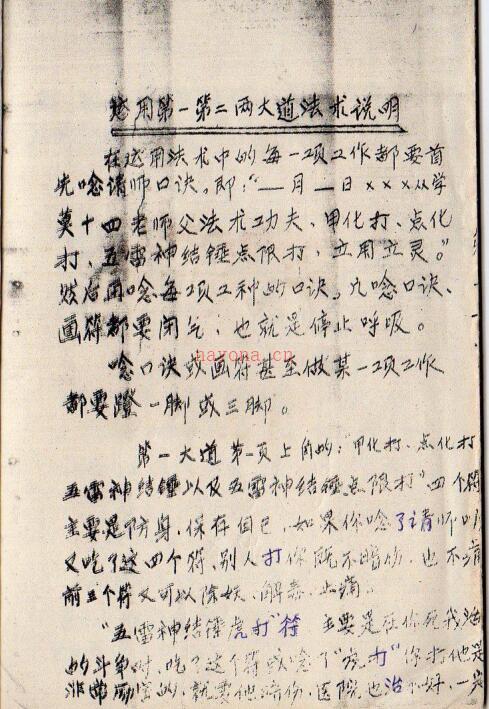 运用第一第二两大道法术说明
在运用法术中的每一项工作都要首
先唸请师口诀。即:“＿月＿日×××从学
莫十四老师父法术功夫、甲化打、点化
打、五雷神结锤点限打,立用立灵。”
然后再唸每项工种的口诀。凡唸口诀、
画符都要闭气,也就是停止呼吸。
nayona.cn
唸口诀或画符甚至做某一项工作
都要蹬一脚或三脚。
第一大道第一页上角的:“甲化打、点化打
五雷神结锤以及五雷神结锤点限打”四个符
主要是防身,保存自己,如果你唸了请师口
又吃了这四个符,别人打你既不暗伤,也不痛
前三个符又可以除妖、解毒、止痛。
“五雷神结锤虎打”符 主要是在你死我活
的斗争时,吃了这个符或唸了“虎打”你打他是
非常厉害的,就要他暗伤,医院也治不好,一